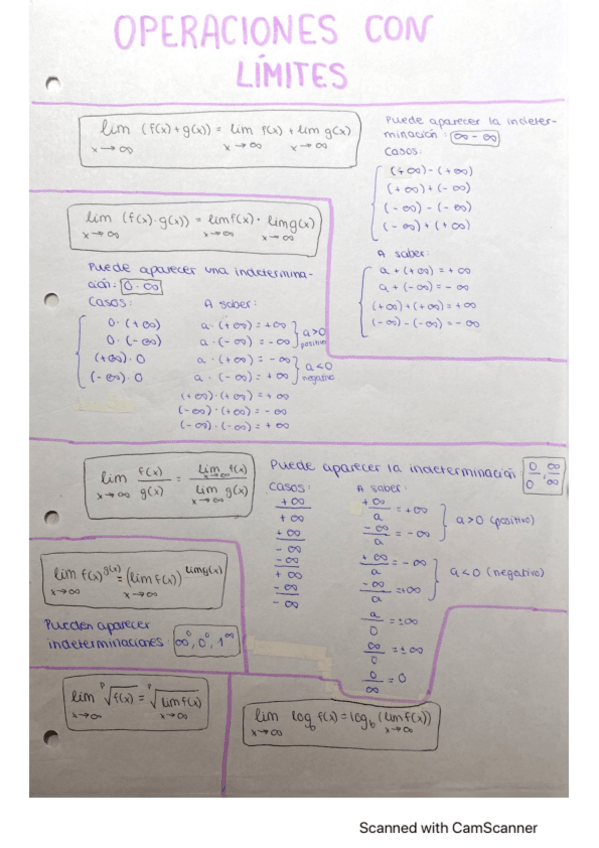 OPERACIONES CON
LÍMITES
lim (f(x)+g(x)) = lim f(x) + lim g(x)
x→∞ x→∞ x→∞
Puede aparecer la indeter-
minación: ∞ - ∞
Casos:
(+∞) - (+∞)
(+∞) + (-∞)
(-∞) - (-∞)
(-∞) + (+∞)
A saber:
a + (+∞) = +∞
a + (-∞) = -∞
(+∞) + (+∞) = +∞
(-∞) - (-∞) = -∞
lim (f(x)·g(x)) = lim f(x) · lim g(x)
x→∞ x→∞ x→∞
Puede aparecer una indetermina-
ción: 0·∞
Casos:
0·(+∞)
0·(-∞)
(+∞)·0
(-∞)·0
A saber:
a·(+∞) = +∞
a·(-∞) = -∞
a>0
positivo
a·(+∞) = -∞
a·(-∞) = +∞
a<0
negativo
(+∞)·(+∞) = +∞
(-∞)·(+∞) = -∞
(-∞)·(-∞) = +∞
lim f(x)/g(x) = lim f(x)/lim g(x)
x→∞ x→∞ x→∞
Puede aparecer la indeterminación: 0/0, ∞/∞
Casos:
+∞/+∞
+∞/-∞
-∞/+∞
-∞/-∞
A saber:
+∞/a = +∞
-∞/a = -∞
a>0 (positivo)
+∞/a = -∞
-∞/a = +∞
a<0 (negativo)
a/0 = ±∞
∞/0 = ±∞
0/∞ = 0
lim f(x)^g(x) = (lim f(x))^lim g(x)
x→∞ x→∞
Pueden aparecer
indeterminaciones ∞⁰, 0⁰, 1^∞
lim ᵖ√f(x) = ᵖ√lim f(x)
x→∞ x→∞
lim log_b f(x) = log_b (lim f(x))
x→∞ x→∞
Scanned with CamScanner